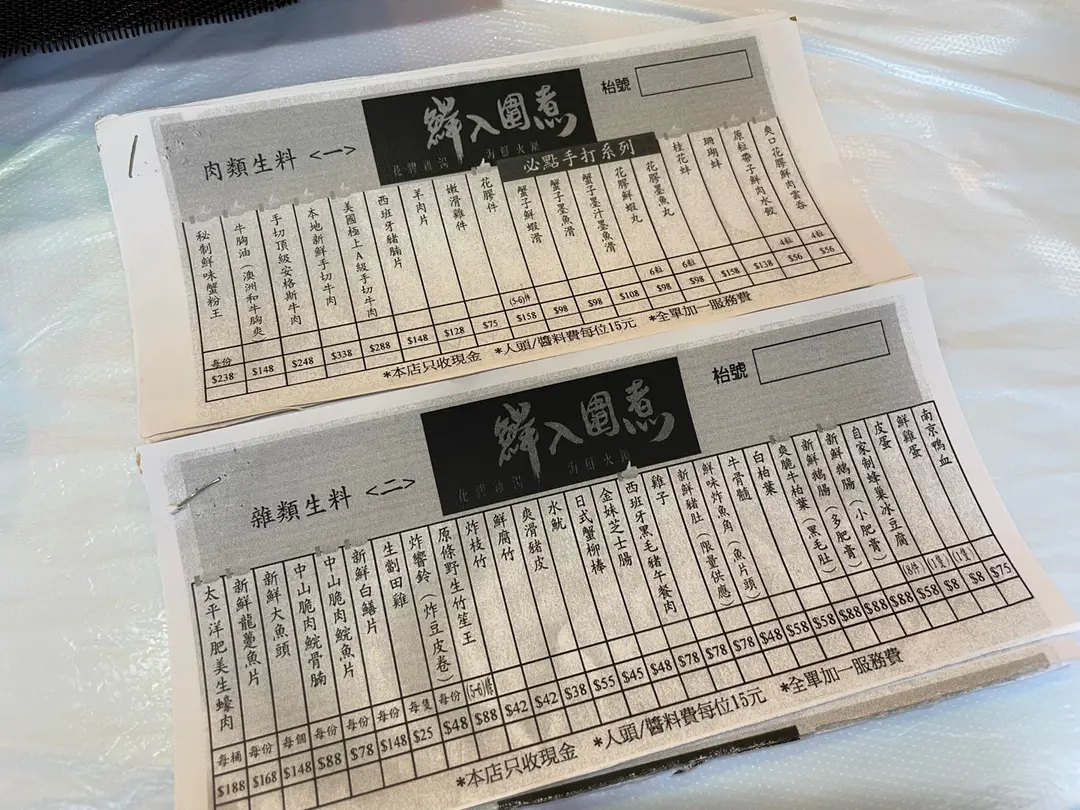 鮮入圍煮
枱號
肉類生料 <一>
必點手打系列
爽口花膠鮮肉雲吞 4粒 $56
原粒帶子鮮肉水餃 4粒 $56
珊瑚蚌 $138
桂花蚌 $158
花膠墨魚丸 6粒 $98
花膠鮮蝦丸 6粒 $98
蟹子墨汁墨魚滑 $108
蟹子墨魚滑 $98
蟹子鮮蝦滑 $98
花膠件 (5-6)件 $158
嫩滑雞件 $75
羊肉片 $128
西班牙豬腩片 $148
美國極上A級手切牛肉 $288
本地新鮮手切牛肉 $338
手切頂級安格斯牛肉 $248
牛胸油（澳洲和牛胸爽 $148
秘制鮮味蟹粉王 每份 $238
*本店只收現金 *人頭/醬料費每位15元 *全單加一服務費
鮮入圍煮
枱號
雜類生料 <二>
南京鴨血 $75
鮮雞蛋 (1隻) $8
皮蛋 (1隻) $8
自家制蜂巢冰豆腐 (8件) $58
新鮮鵝腸（小肥膏） $88
新鮮鵝腸（多肥膏） $88
爽脆牛柏葉（黑毛肚） $88
白柏葉 $58
牛骨髓 $58
鮮味炸魚角（魚片頭） $48
新鮮豬肚（限量供應） $78
雞子 $78
西班牙黑毛豬午餐肉 $78
金妹芝士腸 $48
日式蟹柳棒 $45
水魷 $55
爽滑豬皮 $38
鮮腐竹 $42
炸枝竹 $42
原條野生竹笙王 (5-6)條 $88
炸響鈴（炸豆皮卷） 每份 $48
生劏田雞 每隻 $25
新鮮白鱔片 每份 $148
中山脆肉鯇魚片 每份 $78
中山脆肉鯇骨腩 每份 $88
新鮮大魚頭 每個 $148
新鮮龍躉魚片 每份 $168
太平洋肥美生蠔肉 每桶 $188
*本店只收現金 *人頭/醬料費每位15元 *全單加一服務費